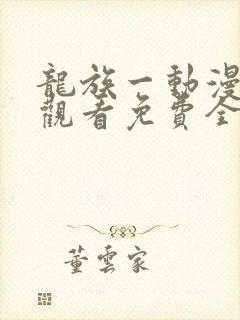 龍族一動漫
觀看免費全
董雲家